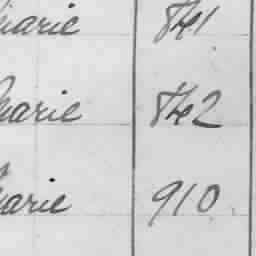 Marie 841
Marie 842
Marie 910